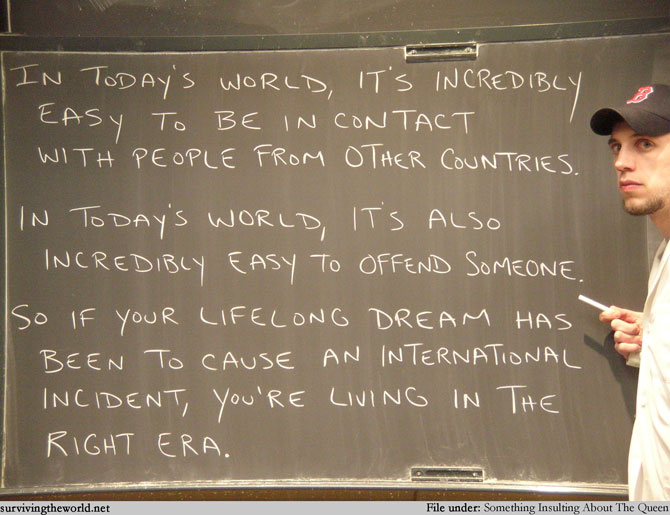 IN TODAY'S WORLD, IT'S INCREDIBLY
EASY TO BE IN CONTACT
WITH PEOPLE FROM OTHER COUNTRIES.
IN TODAY'S WORLD, IT'S ALSO
INCREDIBLY EASY TO OFFEND SOMEONE.
SO IF YOUR LIFELONG DREAM HAS
BEEN TO CAUSE AN INTERNATIONAL
INCIDENT, YOU'RE LIVING IN THE
RIGHT ERA.
B
survivingtheworld.net File under: Something Insulting About The Queen